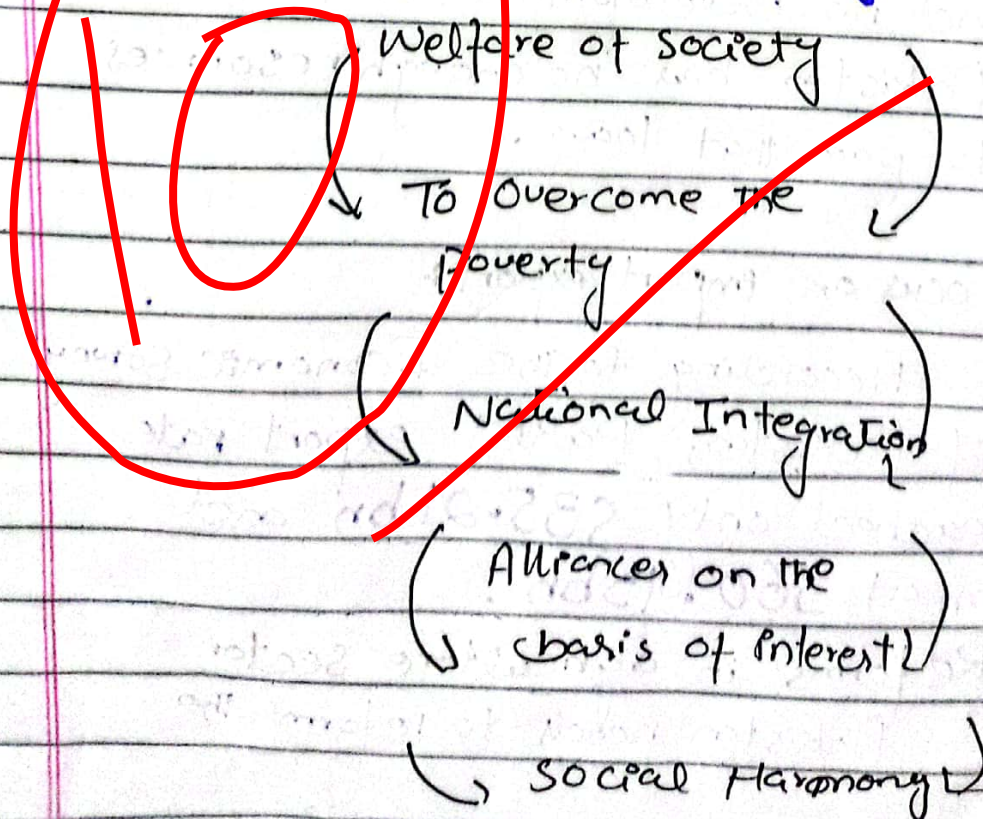 10
Welfare of Society
To Overcome the
Poverty
National Integration
Alliances on the
basis of interest
Social Harmony